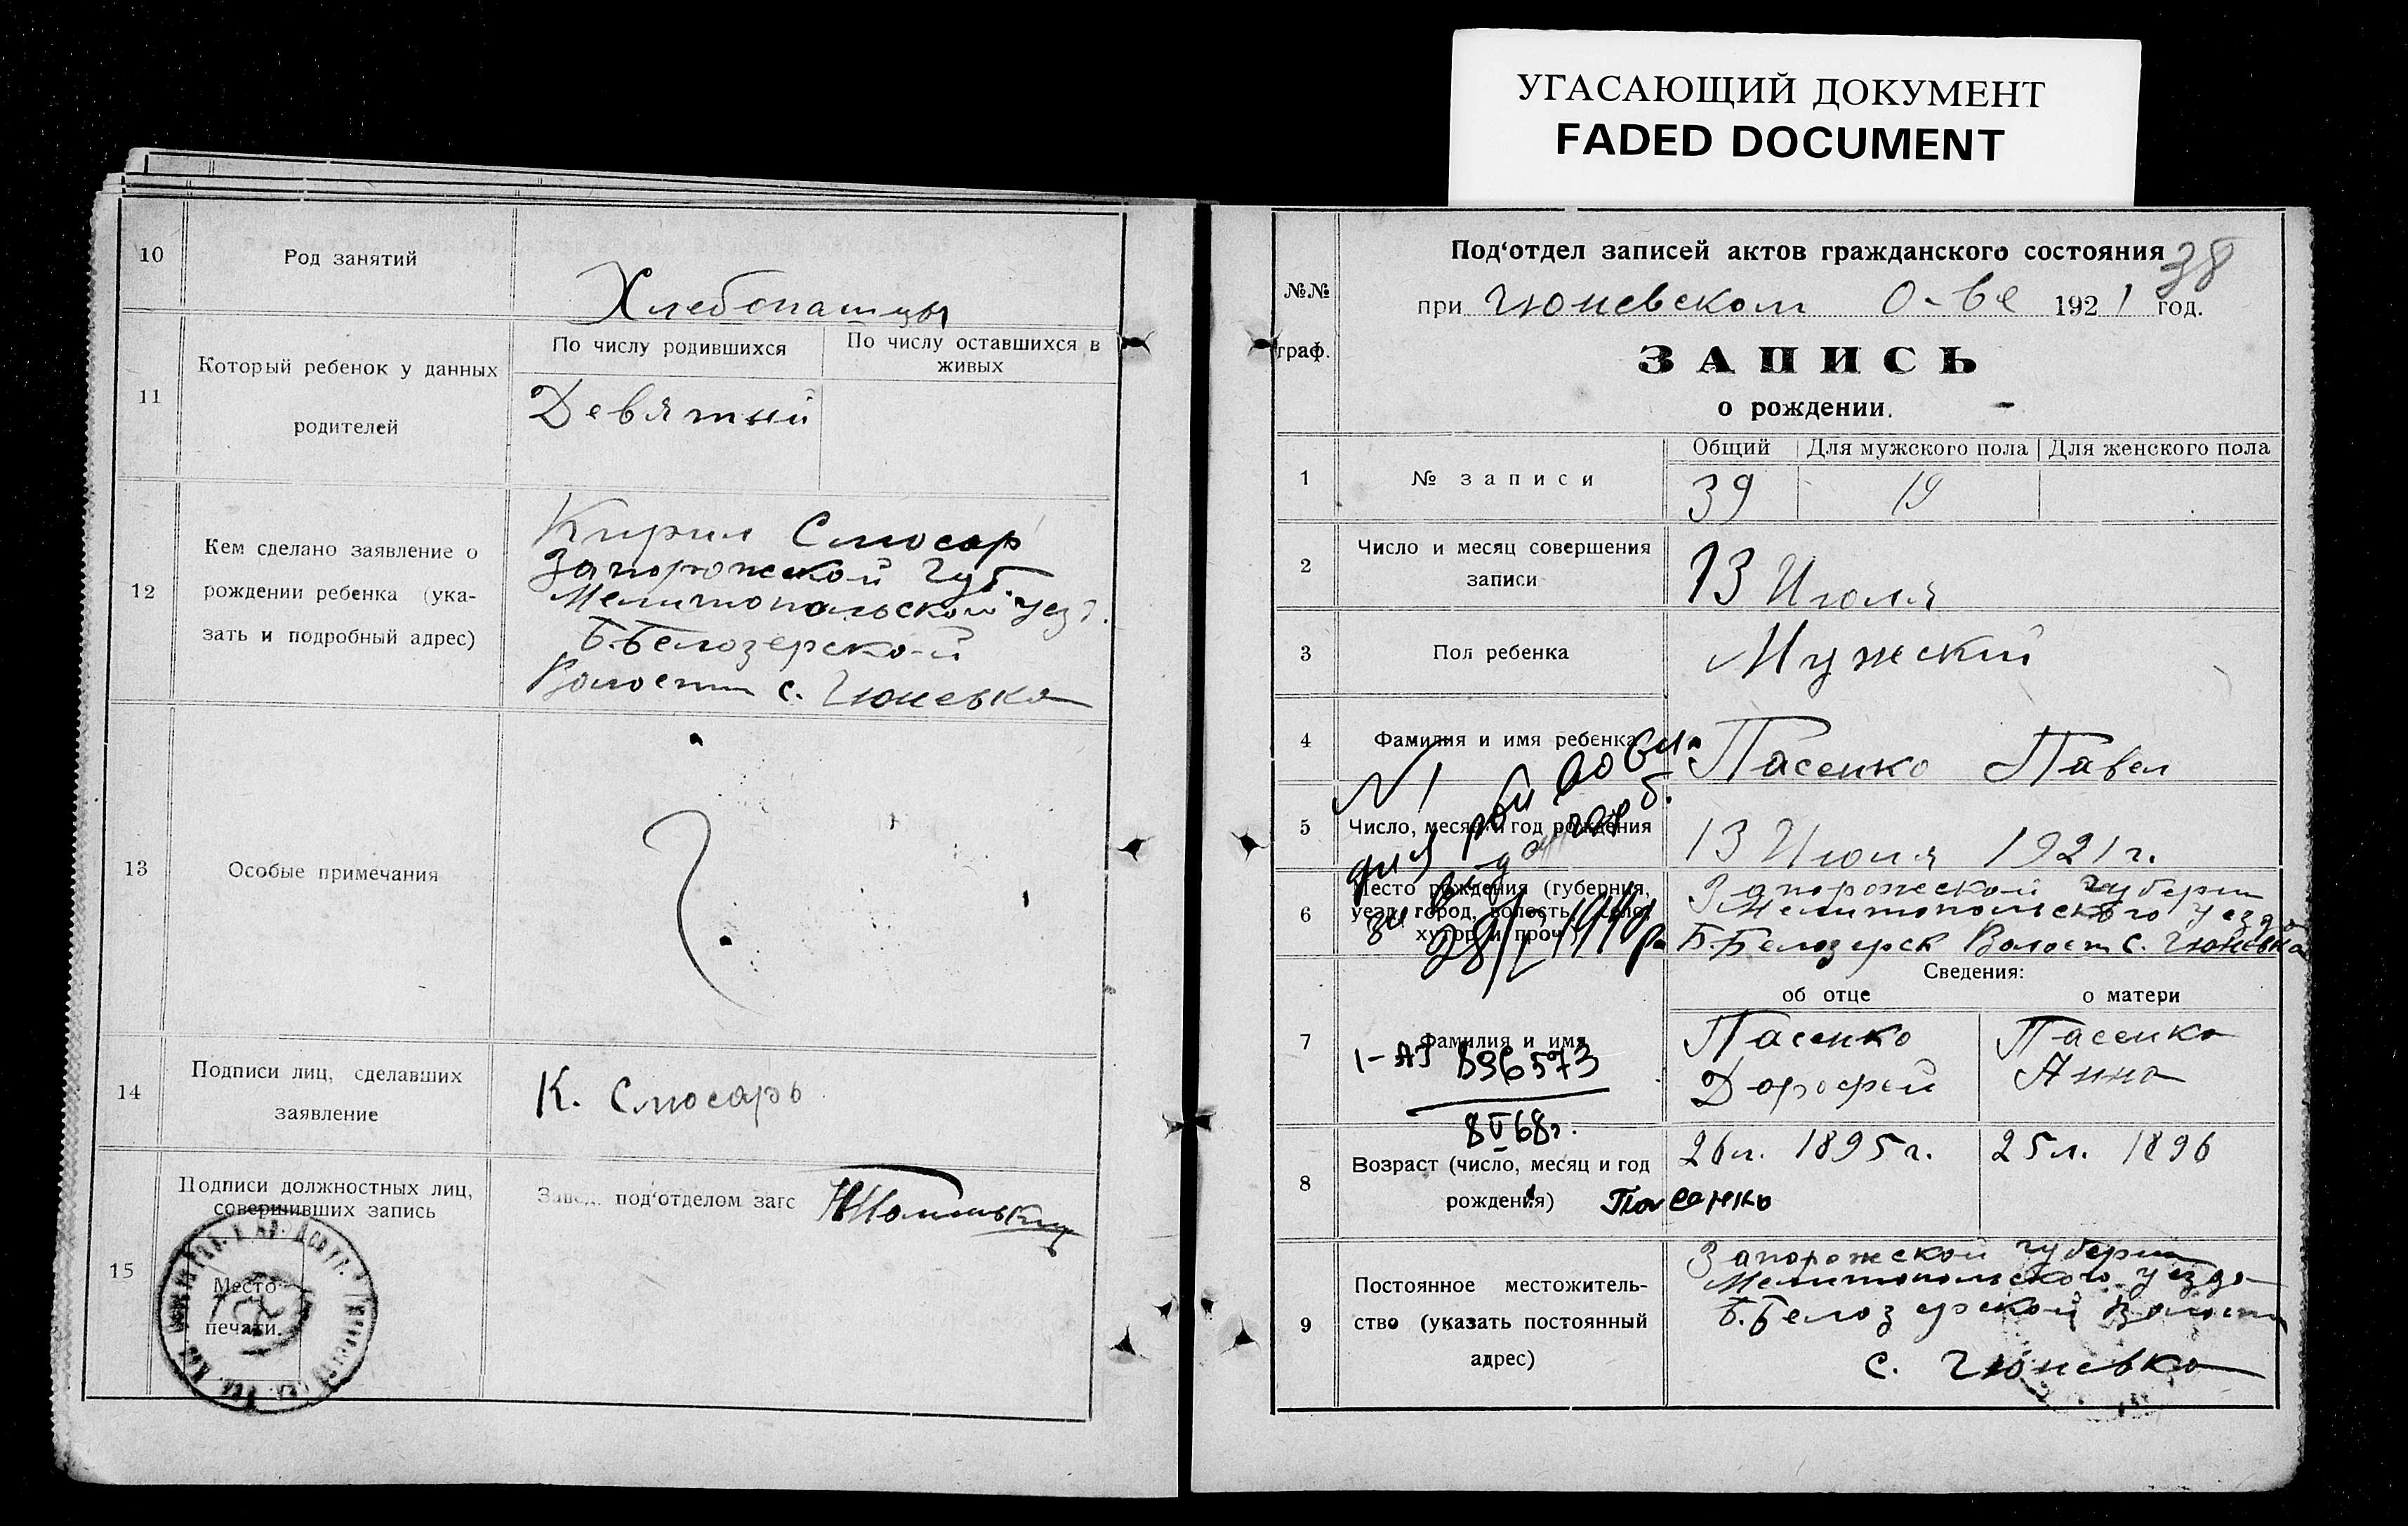 УГАСАЮЩИЙ ДОКУМЕНТ
FADED DOCUMENT
10
Род занятий
Хлебопашцы
11
Который ребенок у данных
родителей
По числу родившихся
По числу оставшихся в
живых
Девятый
12
Кем сделано заявление о
рождении ребенка (ука-
зать и подробный адрес)
Кирил Слюсар
Запорожской губ
Мелитопольской уез.
Б.Белозерской
Волости с. Гюневка
13
Особые примечания
14
Подписи лиц, сделавших
заявление
К. Слюсарь
15
Подписи должностных лиц,
совершивших запись
Завед. под‘отделом загс
Место
печати.
№№
граф.
Под‘отдел записей актов гражданского состояния
38
при Гюневском О-ве 1921 год.
ЗАПИСЬ
о рождении.
1
№ записи
Общий
Для мужского пола
Для женского пола
39
19
2
Число и месяц совершения
записи
13 Июля
3
Пол ребенка
Мужский
4
Фамилия и имя ребенка
Пасенко Павел
5
Число, месяц и год рождения
13 Июля 1921 г.
6
Место рождения (губерния,
уезд, город, волость, село,
хутор и проч.)
Запорожской губерни
Мелитопольского уезда
Б.Белозерск Волост с. Гюневка
№ 1
28/I 1940 р
7
Фамилия и имя
Сведения:
об отце
о матери
Пасенко
Дорофей
Пасенко
Анна
1-АЗ 896573
8 V 68г.
8
Возраст (число, месяц и год
рождения)
26 л. 1895 г.
25 л. 1896
Пасенко
9
Постоянное местожитель-
ство (указать постоянный
адрес)
Запорожской губерни
Мелитопольского уезда
Б.Белозерской Волости
с. Гюневка